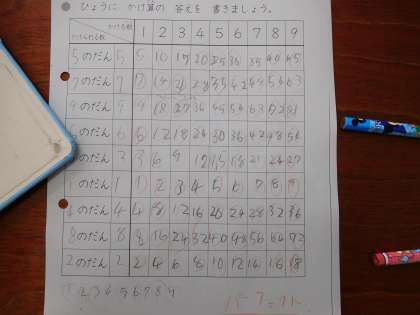 ひょうに かけ算の 答えを 書きましょう。
かける数 1 2 3 4 5 6 7 8 9
かけられる数
5のだん 5 5 10 15 20 25 30 35 40 45
7のだん 7 7 14 21 28 35 42 49 56 63
9のだん 9 9 18 27 36 45 54 63 72 81
6のだん 6 6 12 18 24 30 36 42 48 54
3のだん 3 3 6 9 12 15 18 21 24 27
1のだん 1 1 2 3 4 5 6 7 8 9
4のだん 4 4 8 12 16 20 24 28 32 36
8のだん 8 8 16 24 32 40 48 56 64 72
2のだん 2 2 4 6 8 10 12 14 16 18
1 2 3 4 5 6 7 8 9
パーフェクト